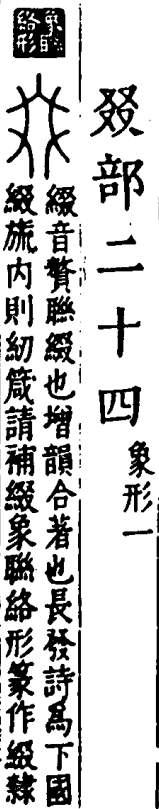 叕部二十四 象形一
象聯絡形
綴音贅聯綴也增韻合著也長發詩爲下國
綴旒內則紉箴請補綴象聯絡形篆作綴隸